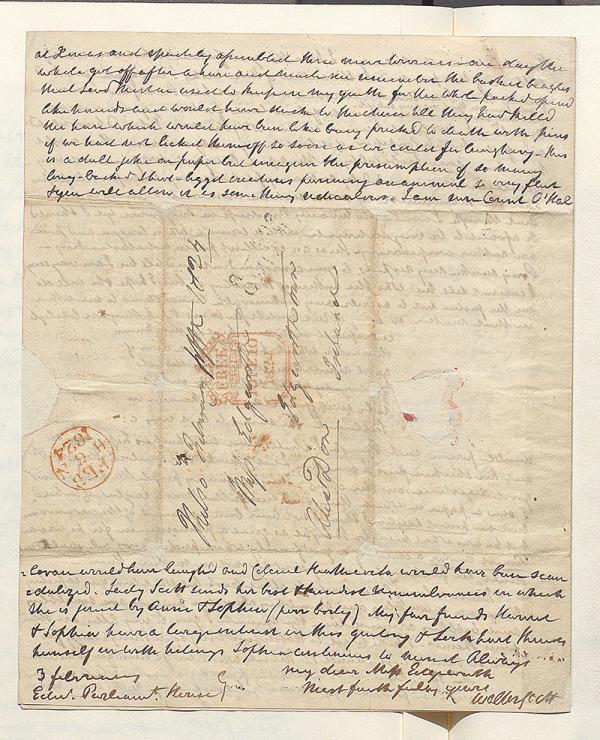 and speedily assembled three more terriers - one day the
whole got off after a hare and made me remember the basket beagles
that Lord Morton used to keep in my youth for the whole pack opend
like hounds and would have stuck to the chace till they had killd
the hare which would have been like being pricked to death with pins
if we had not licked them off so soon as we could for laughing - This
is a dull joke on paper but imagine the presumption of so many
long-backed short-leggd creatures pursuing an animal so very fleet
& you will allow it is something ridiculous. I am sure Count O'Hal
February fifth 1824
Miss Edgeworth
Edgeworthstown
Ireland
FREE
1824
loran would have laughd and Colonel Heathcock would have been scan
dalized. Lady Scott sends her best & kindest remembrances in which
she is joind by Anne & Sophia (poor body) My fair friends Harriet
& Sophia have a large interest in this greeting & Lockhart throws
himself in with Sophia continues to Always
my dear Miss Edgeworth
Most faithfully yours
Walter Scott
3 february
Edinr. Parliamt. House